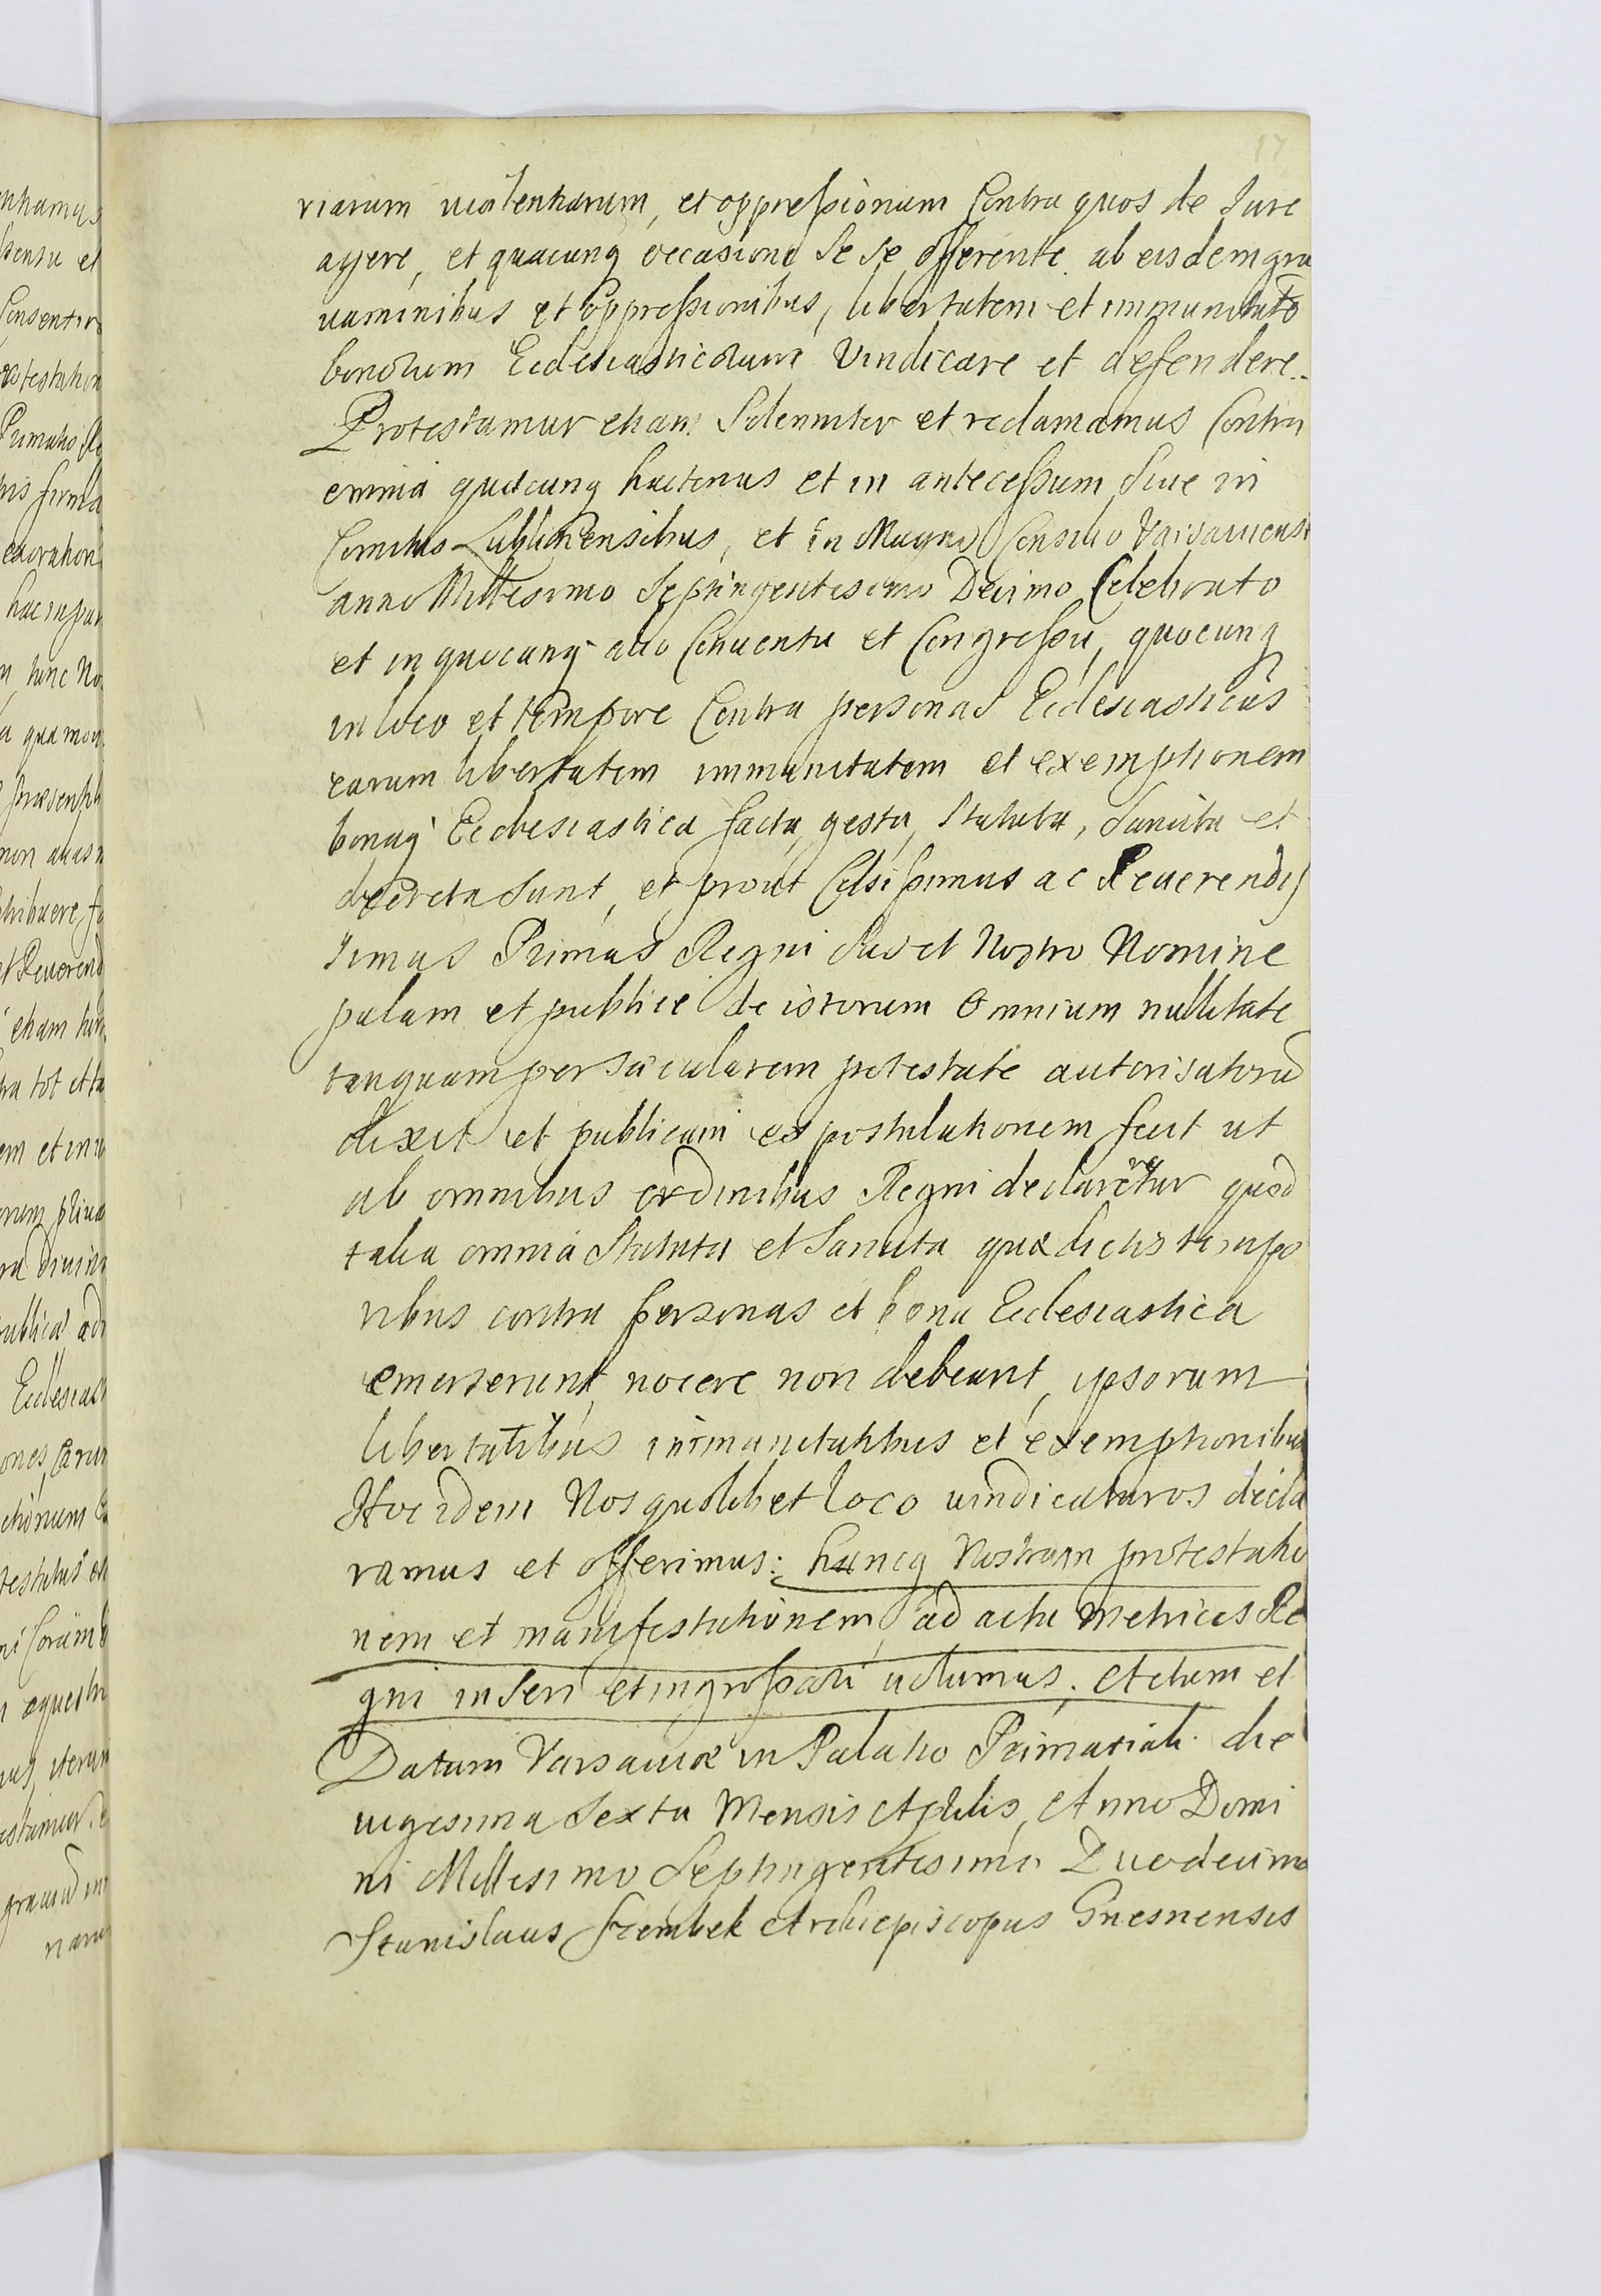 17
riarum uiolentiarum, et oppressionum Contra quos de Jure
agere, et quacunq occasione Se se offerente ab eisdem gra
uaminibus et oppressionibus, libertatem et immunitatē
bonorum Ecclesiasticorum Vindicare et defendere.
Protestamur etiam Solenniter et reclamamus Contra
omnia quæcunq hactenus et in antecessum siue in
Comitiis Lublinensibus, et in Magno Consilio Varsauiensi
anno Millesimo Septingentesimo Decimo Celebrato
et in quocunq alio Conuentu et Congressu, quocunq
in loco et tempore Contra personas Ecclesiasticas
earum libertatem immunitatem et exemptionem
bonaq Ecclesiastica facta, gesta, Statuta, Sancita et
decreta sunt, et prout Celsissimus ac Reuerendis
simus Primas Regni Suo et Nostro Nomine
palam et publice de istorum Omnium nullitate
tanquam per sæcularem potestate autorisatorū
dixit et publicam expostulationem fecit ut
ab omnibus ordinibus Regni declaretur quod
talia omnia Statuta et Sancita quæ dictis tempo
ribus contra personas et bona Ecclesiastica
emerserunt, nocere non debeant, ipsorum
libertatibus immunitatibus et exemptionibus
Hoc idem Nos quolibet loco uindicaturos decla
ramus et offerimus: hancq Nostram protestatio
nem et manifestationem, ad acta Metrices Re
gni inseri et ingrossari uolumus. Actum et
Datum Varsauiæ in Palatio Primatiali die
uigesima Sexta Mensis Aprilis, Anno Domi
ni Millesimo Septingentesimo Duodecimo
Stanislaus Szembek Archiepiscopus Gnesnensis